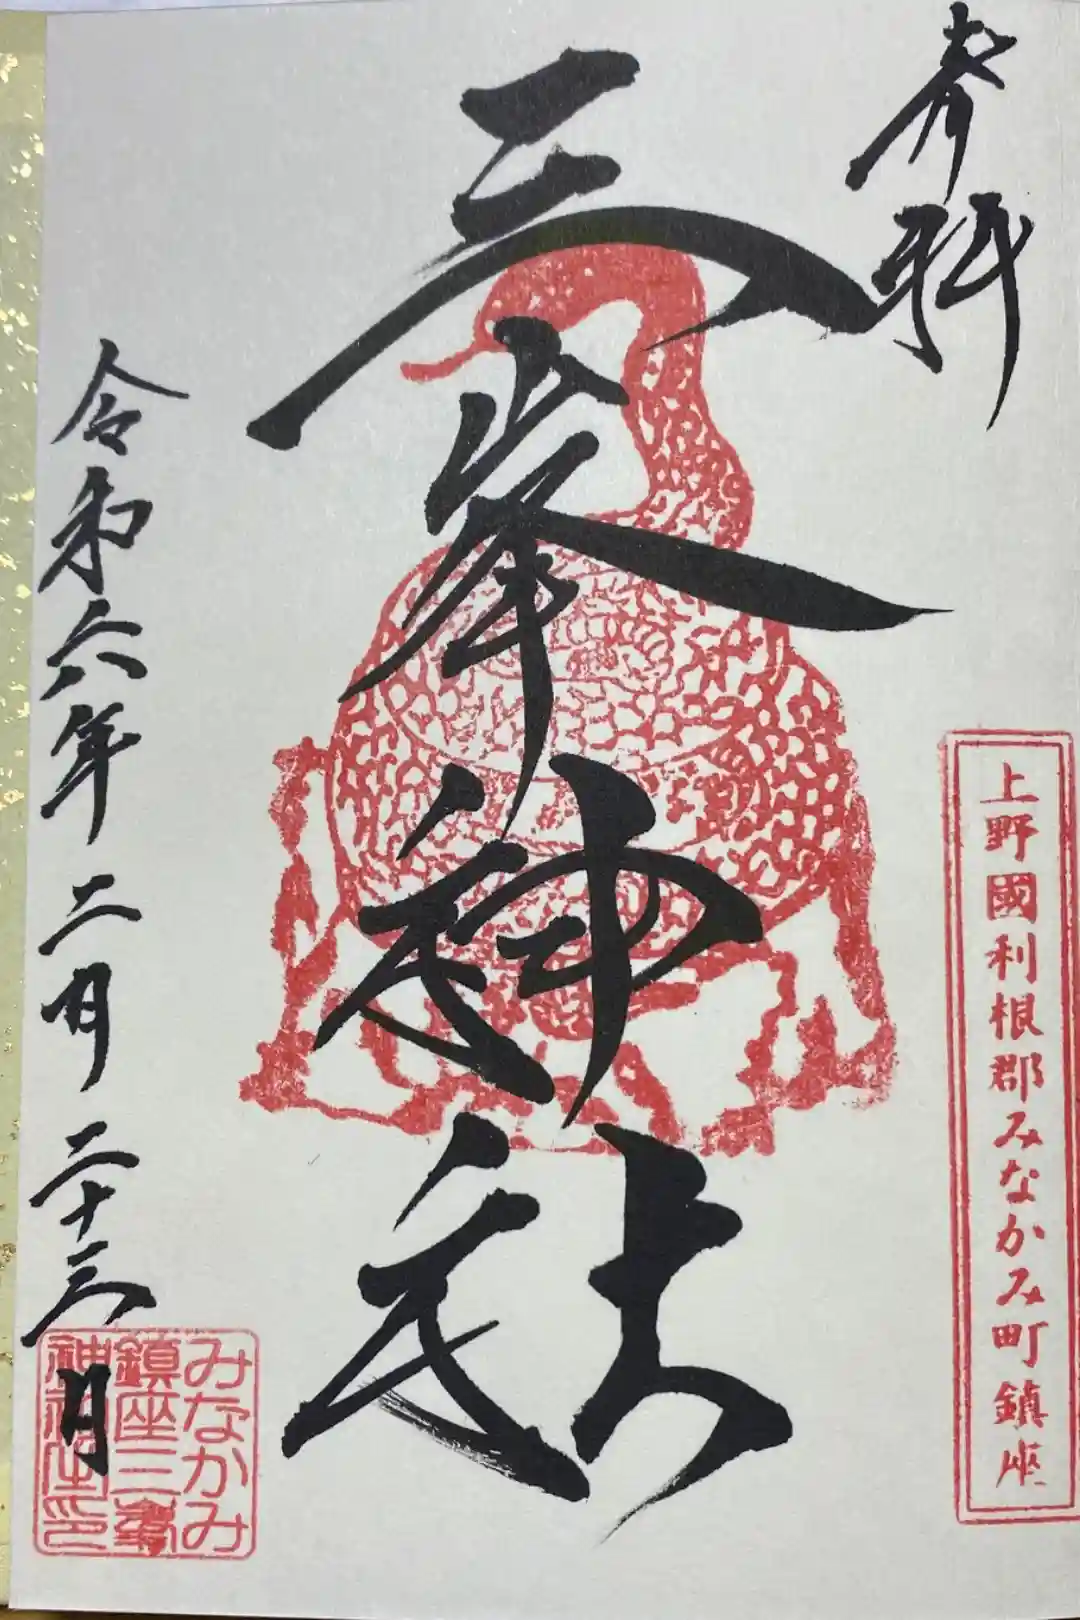 奉拝
上野國利根郡みなかみ町鎮座
三峯神社
令和六年二月二十三日
みなかみ
鎮座三峯
神社之印